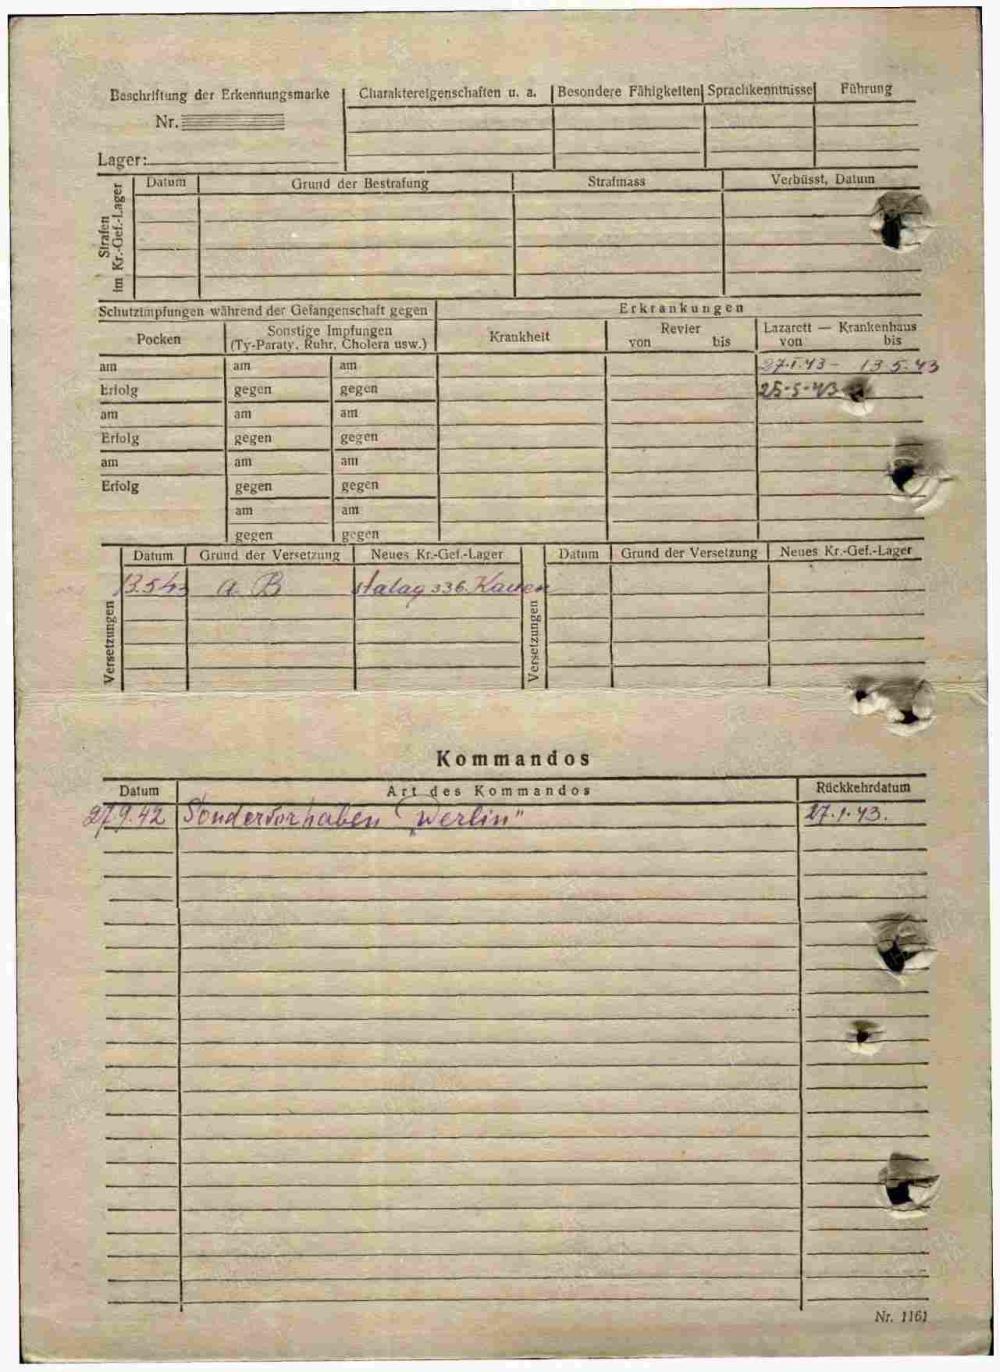 Beschriftung der Erkennungsmarke
Nr.
Lager:
Charaktereigenschaften u. a.
Besondere Fähigkeiten
Sprachkenntnisse
Führung
Strafen im Kr.-Gef.-Lager
Datum
Grund der Bestrafung
Strafmass
Verbüsst, Datum
Schutzimpfungen während der Gefangenschaft gegen
Erkrankungen
Pocken
Sonstige Impfungen
(Ty-Paraty, Ruhr, Cholera usw.)
Krankheit
Revier
von bis
Lazarett — Krankenhaus
von bis
am am am 27.1.43 - 13.5.43
Erfolg gegen gegen 25-5-43
am am am
Erfolg gegen gegen
am am am
Erfolg gegen gegen
am am
gegen gegen
Versetzungen
Datum Grund der Versetzung Neues Kr.-Gef.-Lager
13.5.43 a. B Stalag 336. Kauen
Versetzungen
Datum Grund der Versetzung Neues Kr.-Gef.-Lager
Kommandos
Datum Art des Kommandos Rückkehrdatum
27.9.42 Sondervorhaben „Werlin" 27.1.43.
Nr. 1161